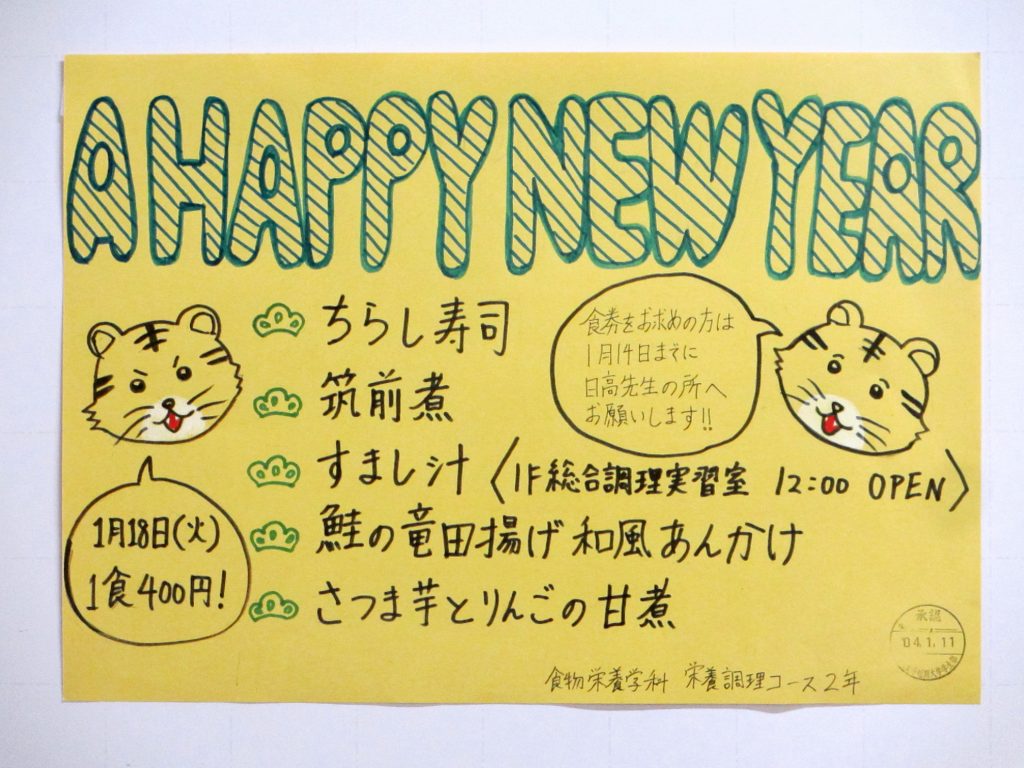 A HAPPY NEW YEAR
ちらし寿司
筑前煮
すまし汁
鮭の竜田揚げ和風あんかけ
さつま芋とりんごの甘煮
食券をお求めの方は
1月14日までに
日高先生の所へ
お願いします!!
〈1F総合調理実習室 12:00 OPEN〉
1月18日(火)
1食400円!
承認
'04.1.11
食物栄養学科 栄養調理コース2年